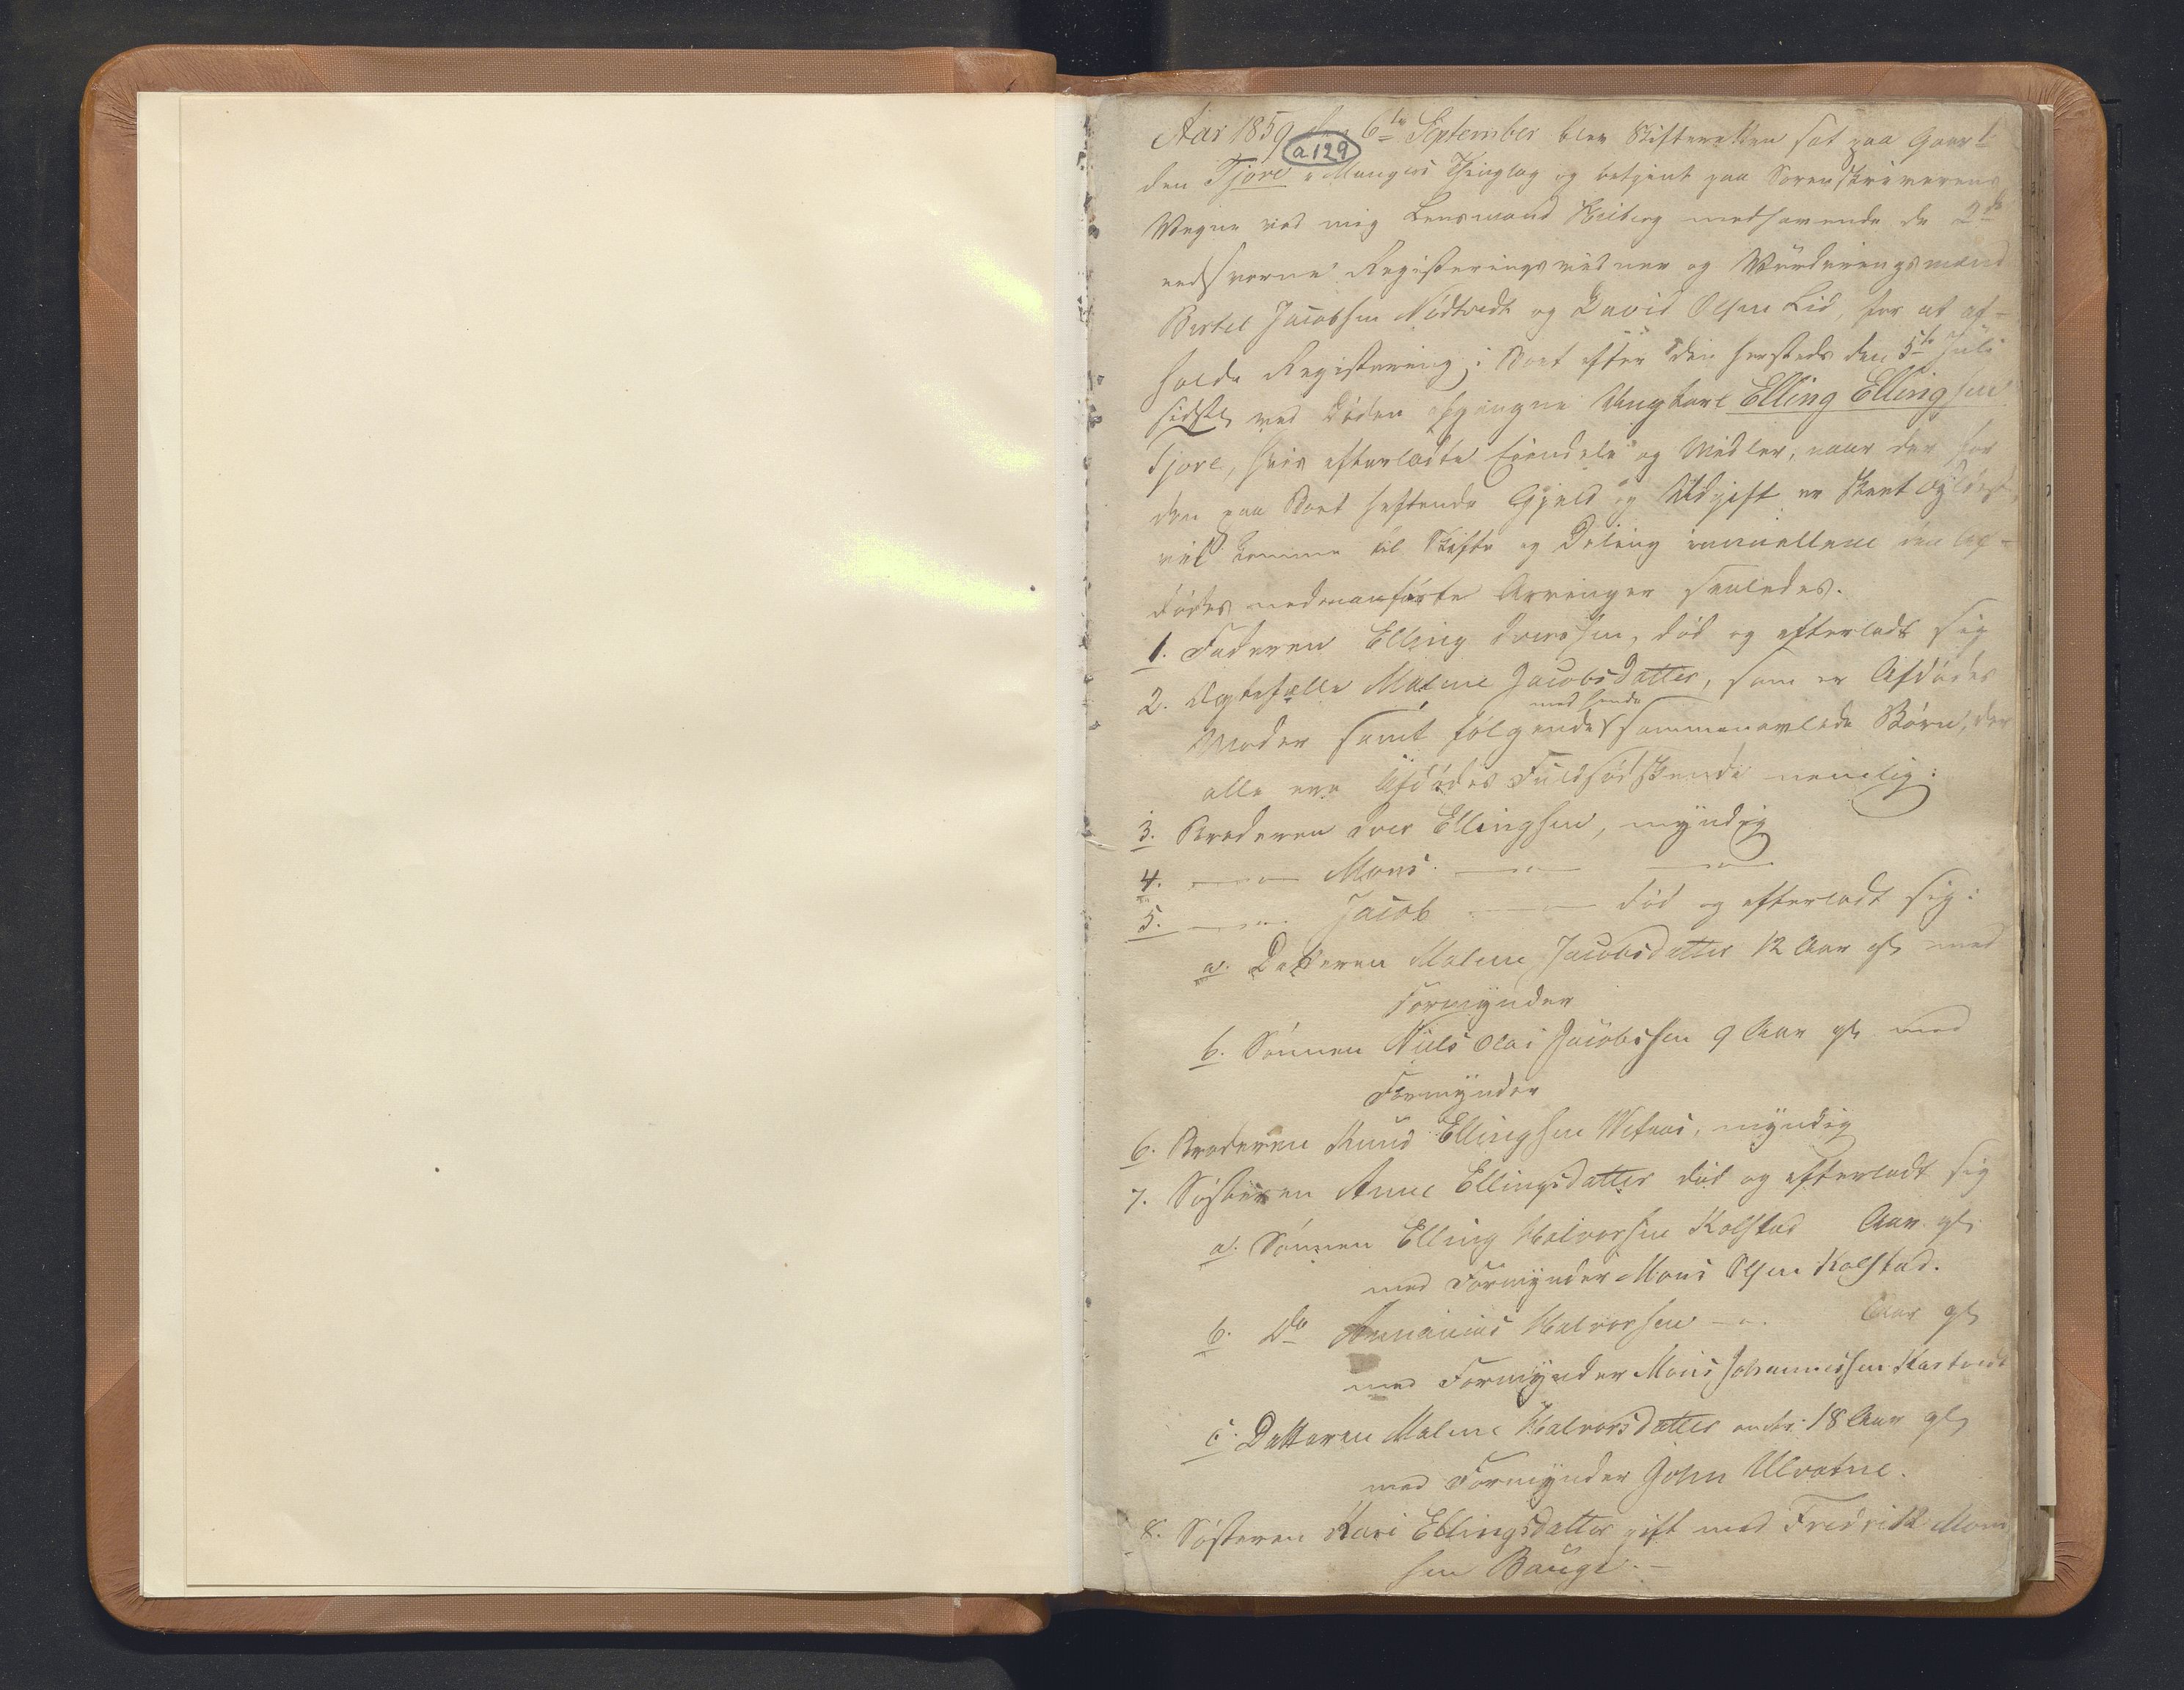 Aar 1859 den 6te September blev Skifteretten sat paa Gaar-
a 129
den Tjore i Mangers Thinglag og betjent paa Sorenskriverens
Vegne ved mig Lensmand Heiberg medhavende de 2de
eedsvorne Registreringsvidner og Vurderingsmænd
Bertel Jacobsen Nódtvedt og David Olsen Lid, for at af-
holde Registrering i Boet efter den hersteds den 5te Juli
sidstl. ved Døden afgangne Ungkarl Ellling Ellingsen
Tjore, hvis efterladte Eiendele og Midler, naar der for
den paa Boet heftende Gjeld og Udgift er skeet Fyldest,
vil komme til Skifte og Deling immellem den Af-
dødes nedenanførte Arvinger saaledes.
1. Faderen Elling Iversen, død og efterladt sig
2. Ægtefælle Malene Jacobsdatter, som er Afdødes
med hende
Moder samt følgende sammenavlede Børn, der
alle ere Afdødes Fuldsødskende nemlig:
3. Broderen Iver Ellingsen, myndig
4. —"— Mons —"— —"—
5. —"— Jacob —"— død og efterladt sig:
a. Datteren Malene Jacobsdatter 12 Aar gl. med
Formynder
b. Sønnen Niels Olai Jacobsen 9 Aar gl. med
Formynder
6. Broderen Knud Ellingsen Vetaas, myndig
7. Søsteren Anne Ellingsdatter død og efterladt sig
a. Sønnen Elling Halvorsen Kolstad Aar gl.
med Formynder Mons Olsen Kolstad.
b. Do Annanias Halvorsen —"— Aar gl.
med Formynder Mons Johannessen Kartvedt
c. Datteren Malene Halvorsdatter under 18 Aar gl.
med Formynder John Ulvatne.
8. Søsteren Kari Ellingsdatter gift med Fredrik Mon-
sen Bauge.—